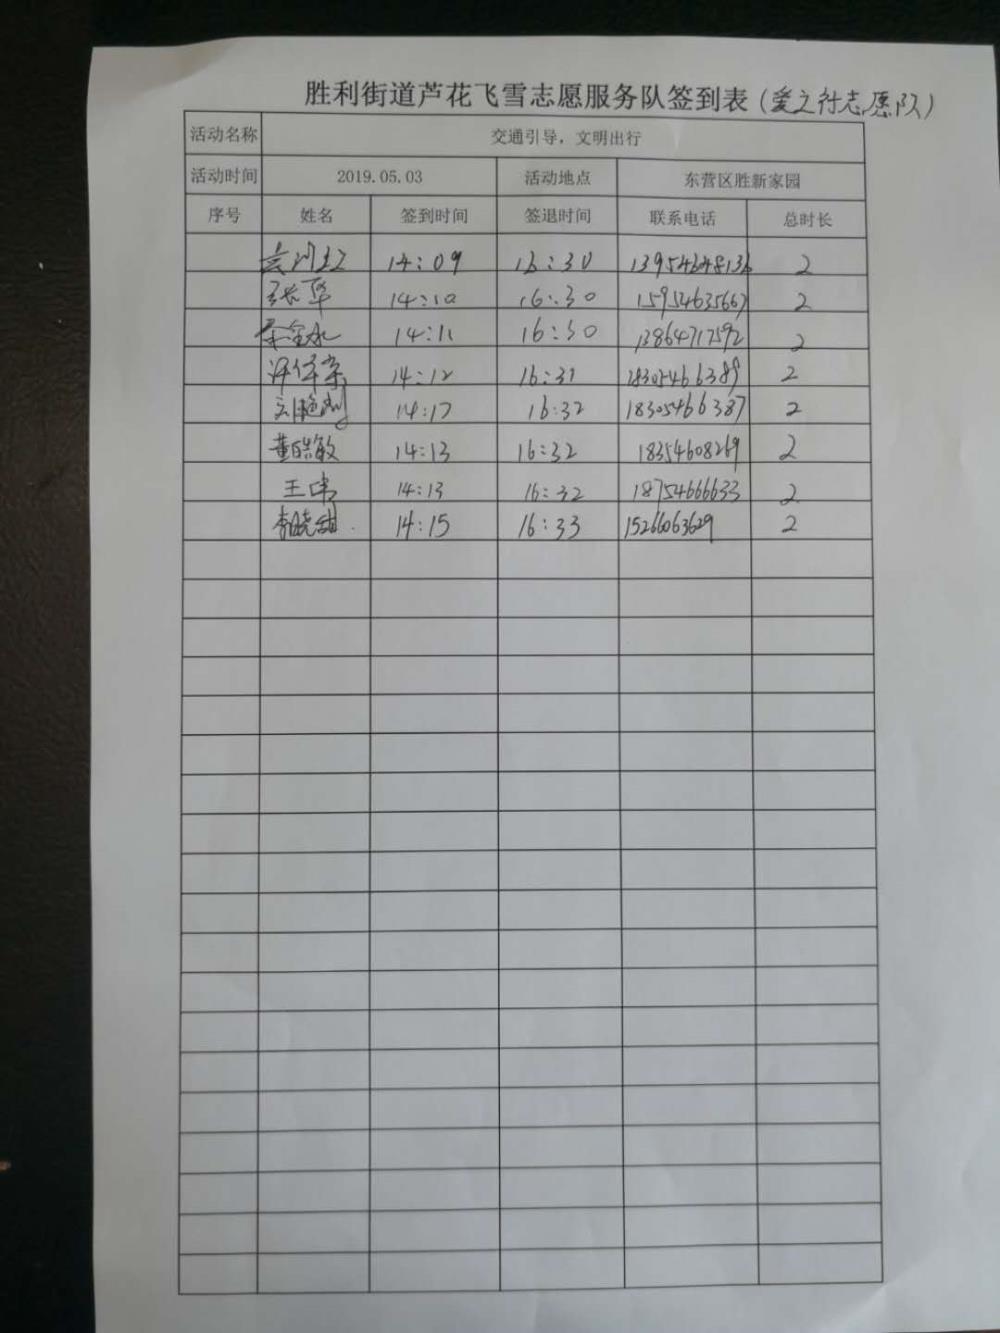 胜利街道芦花飞雪志愿服务队签到表(爱之社志愿队)
活动名称 交通引导，文明出行
活动时间 2019.05.03 活动地点 东营区胜新家园
序号 姓名 签到时间 签退时间 联系电话 总时长
14:09 16:30 13954648136 2
张华 14:10 16:30 15954635667 2
14:11 16:30 13864717592 2
14:12 16:31 18305466389 2
14:17 16:32 18305466387 2
董皓敏 14:13 16:32 18354608269 2
王伟 14:13 16:32 18754666633 2
李晓甜 14:15 16:33 15266063629 2